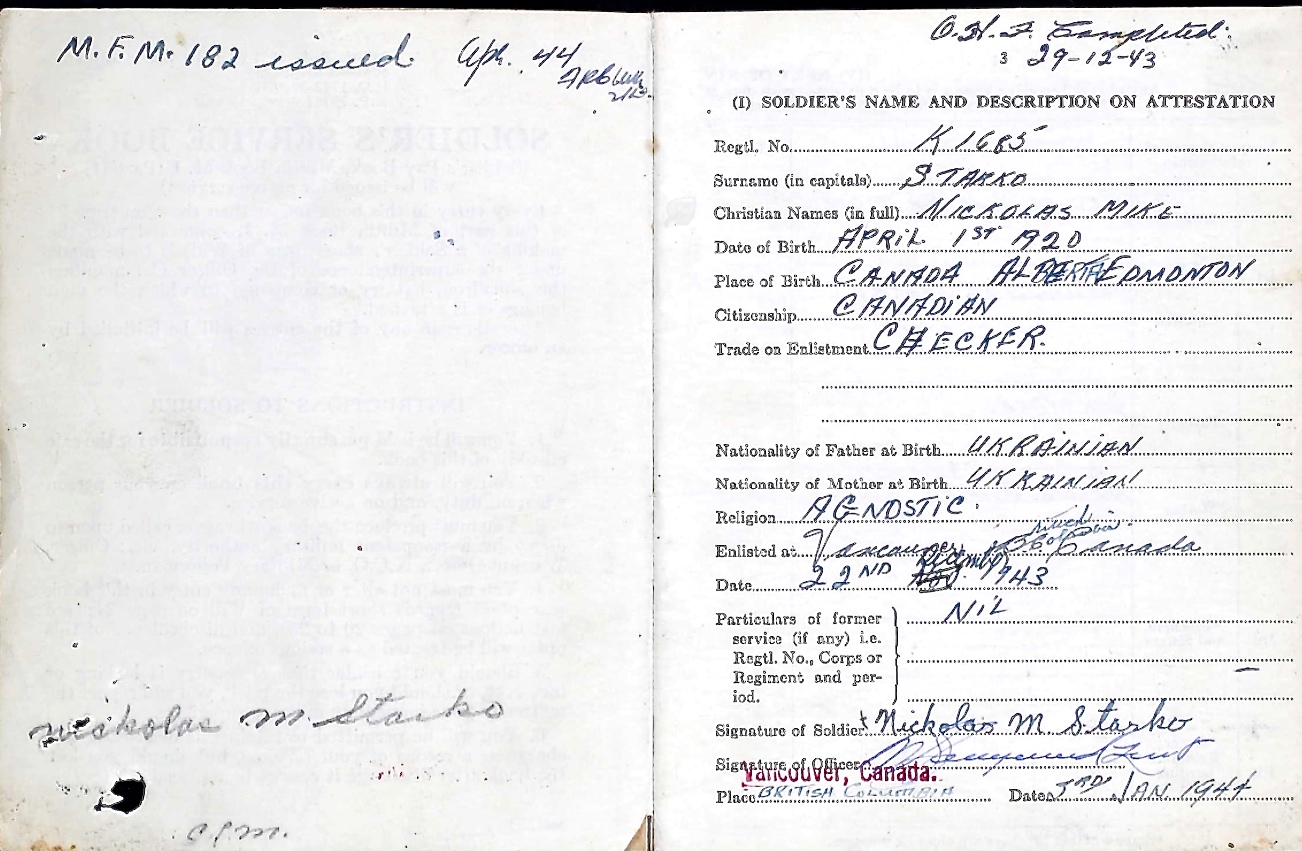 M.F.M. 182 issued. Apr. 44
Nickolas M. Starko
O.H.F. Completed.
3 29-12-43
(I) SOLDIER'S NAME AND DESCRIPTION ON ATTESTATION
Regtl. No. K1685
Surname (in capitals) STARKO
Christian Names (in full) NICKOLAS MIKE
Date of Birth APRIL 1ST 1920
Place of Birth CANADA ALBERTA EDMONTON
Citizenship CANADIAN
Trade on Enlistment CHECKER.
Nationality of Father at Birth UKRAINIAN
Nationality of Mother at Birth UKRAINIAN
Religion AGNOSTIC.
Enlisted at Vancouver Canada
Date 22ND December 1943
Particulars of former NIL
service (if any) i.e.
Regtl. No., Corps or
Regiment and per-
iod.
Signature of Soldier Nickolas M Starko
Signature of Officer
Vancouver, Canada.
Place BRITISH COLUMBIA Date 3RD JAN 1944